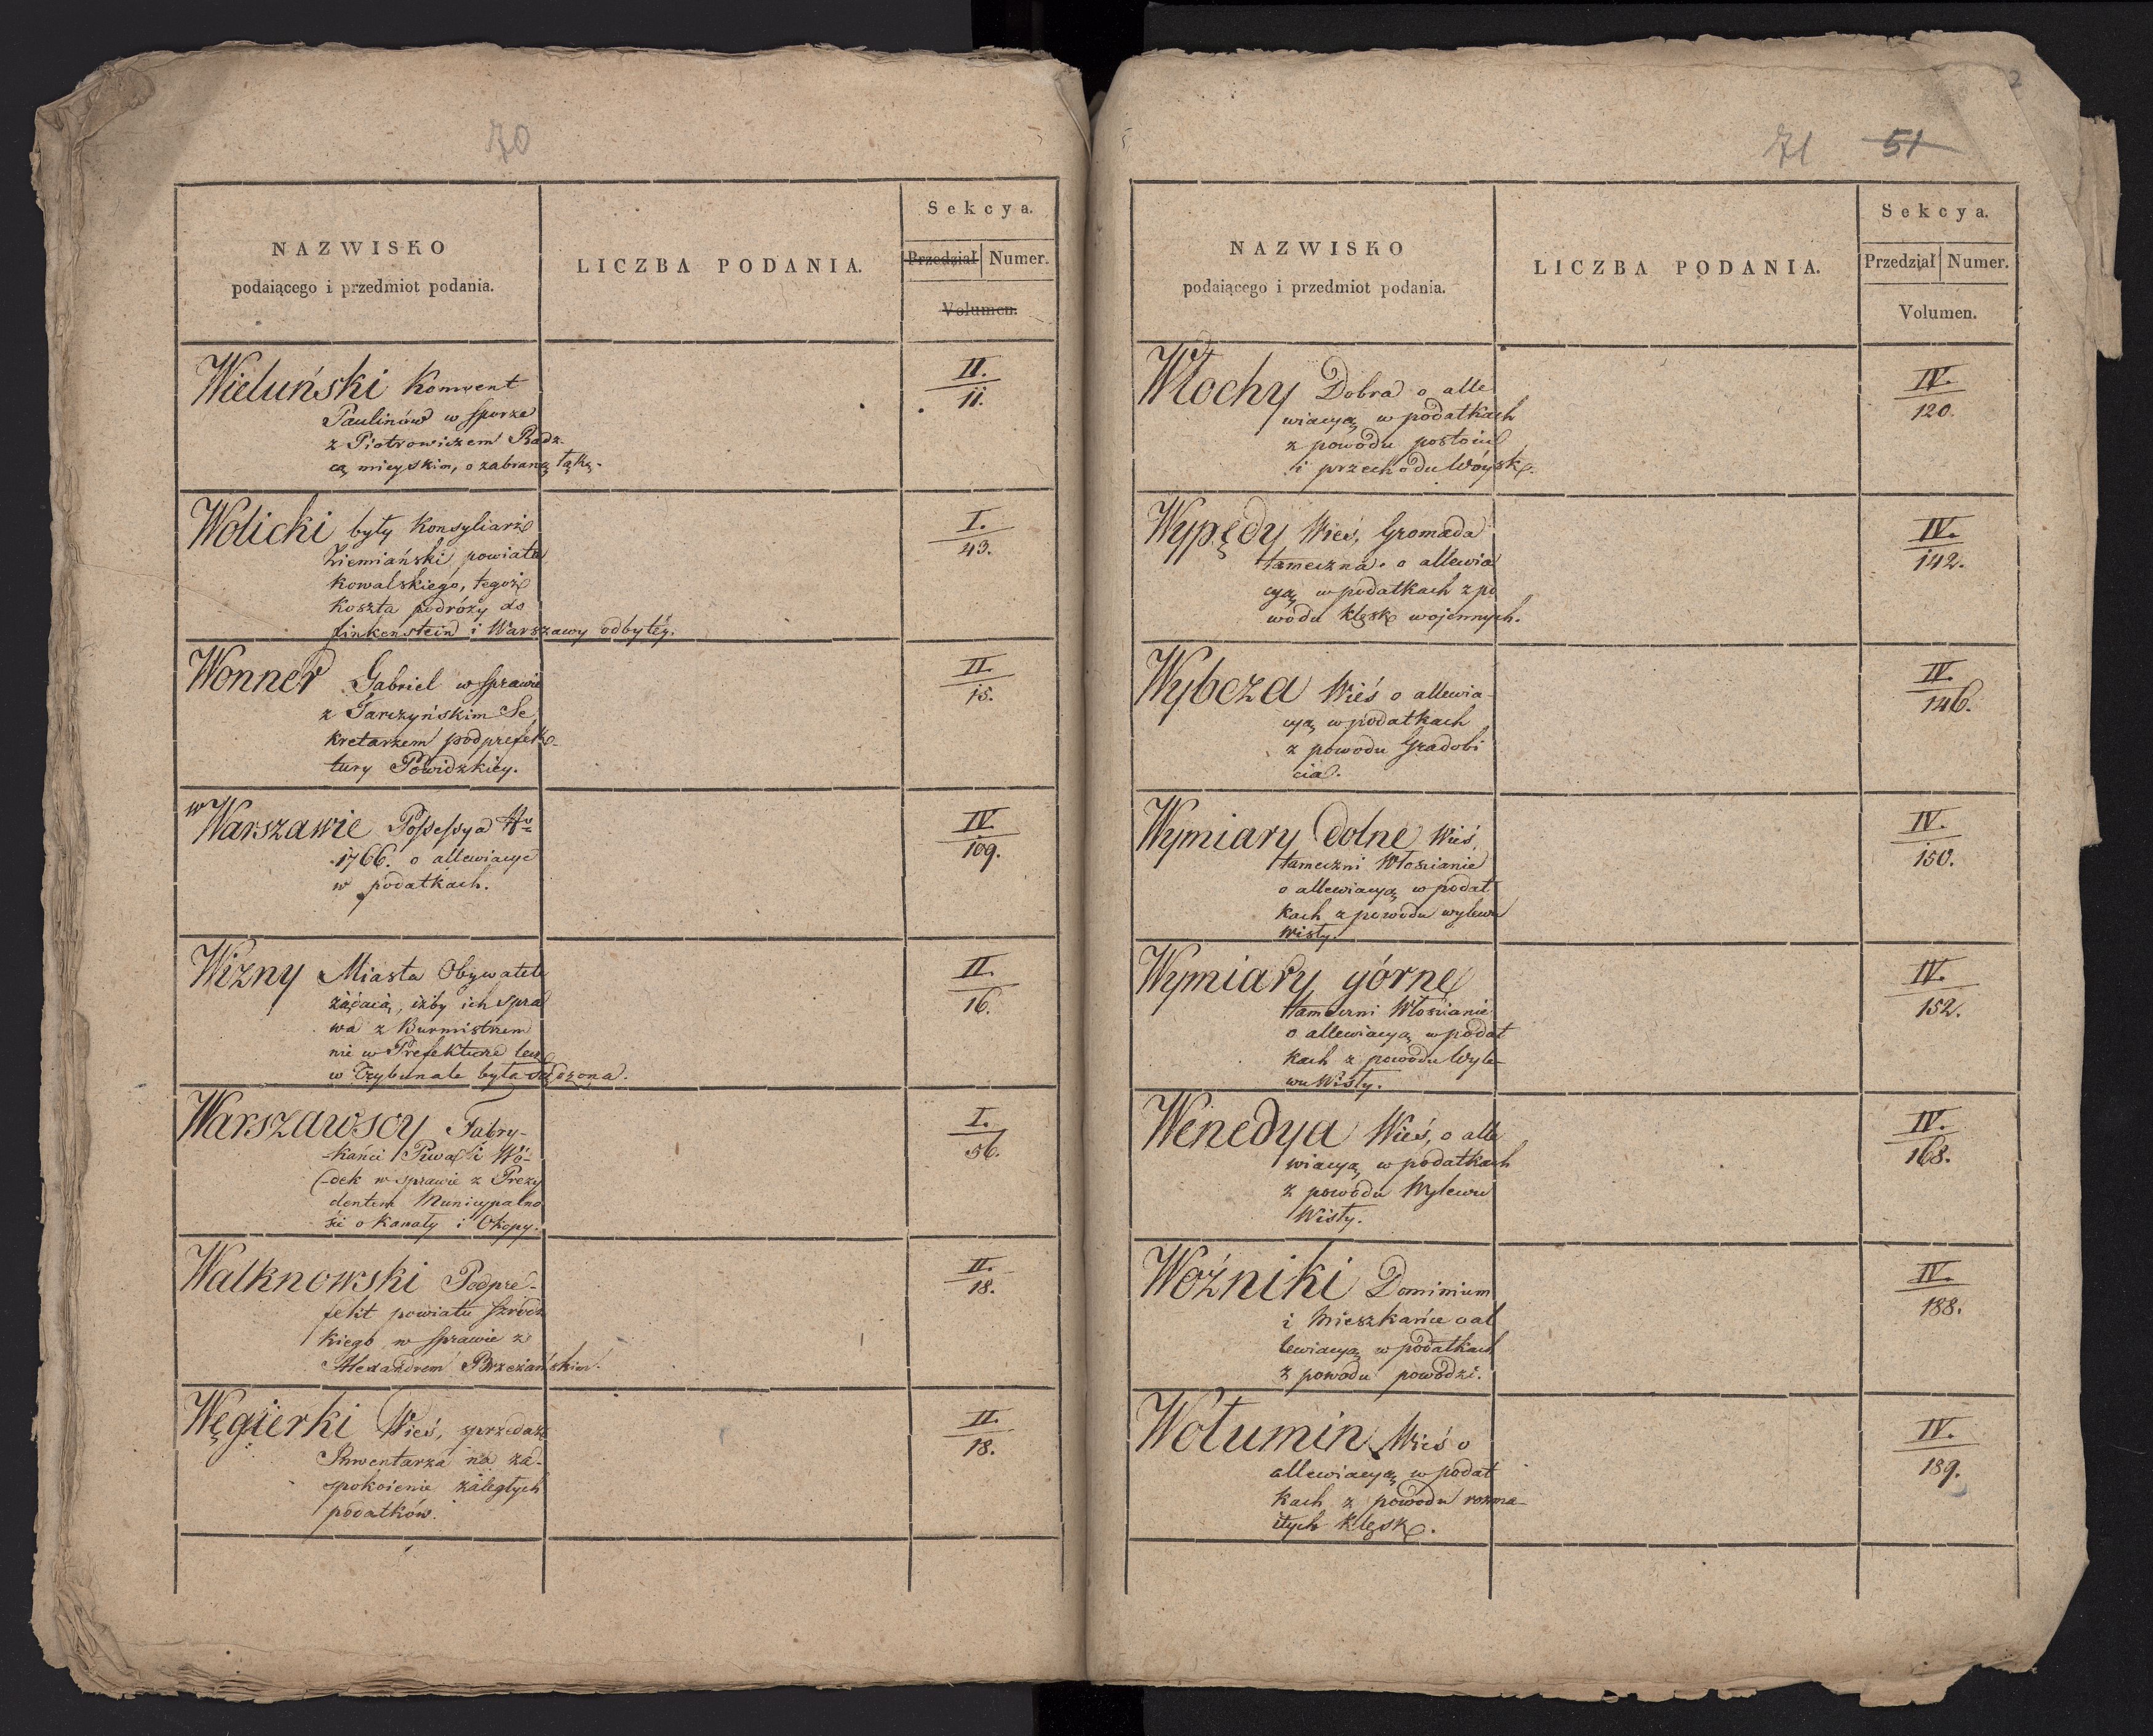 70
NAZWISKO
podaiącego i przedmiot podania.
LICZBA PODANIA.
Sekcya.
Przedział Numer.
Volumen.
Wieluński Konwent
Paulinów w sporze
z Piotrowiczem Radz-
cą mieyskim, o zabraną łąkę.
II.
11.
Wolicki były Konsyliarz
Ziemiański powiatu
Kowalskiego, tegoż
koszta podróży do
Finkenstein i Warszawy odbytéy.
I.
43.
Wonner Gabriel w sprawie
z Tarczyńskim Se
kretarzem podprefek-
tury Powidzkiéy.
II.
15.
w Warszawie Possessya No
1766. o allewiacye
w podatkach.
IV.
109.
Wizny Miasta Obywatele
żądaią, iżby ich spra
wa z Burmistrzem
nie w Prefekturze lecz
w Trybunale była sądzona.
II.
16.
Warszawscy Fabry-
-kańci Piwa i Wó-
-dek w sprawie z Prezy
dentem Municypalno
ści o Kanały i Okopy.
I.
56.
Walknowski Podpre-
fekt powiatu Szrodz
kiego w sprawie z
Alexandrem Brzeżańskim.
II.
18.
Węgierki Wieś, sprzedaż
Inwentarza na za-
spokoienie zaległych
podatków.
II.
18.
71 51
NAZWISKO
podaiącego i przedmiot podania.
LICZBA PODANIA.
Sekcya.
Przedział Numer.
Volumen.
Włochy Dobra o alle
wiacyą w podatkach
z powodu postoiu
i przechodu Wóysk.
IV.
120.
Wypędy Wieś, Gromada
tameczna o allewia
cyą w podatkach z po
wodu klęsk wojennych.
IV.
142.
Wybcza Wieś o allewia-
cyą w podatkach
z powodu Gradobi
cia.
IV.
146.
Wymiary dolne Wieś,
tameczni Włościanie
o allewiacyą w podat
kach z powodu wylewu
Wisły.
IV.
150.
Wymiary górne
tameczni Włościanie
o allewiacyą w podat
kach z powodu Wyle-
wu Wisły.
IV.
152.
Wenedya Wieś, o alle
wiacyą w podatkach
z powodu Wylewu
Wisły.
IV.
168.
Woźniki Dominium
i Mieszkańce o al
lewiacyą w podatkach
z powodu powodzi.
IV.
188.
Wołumin Wieś o
allewiacyą w podat
kach z powodu rozma-
itych klęsk.
IV.
189.